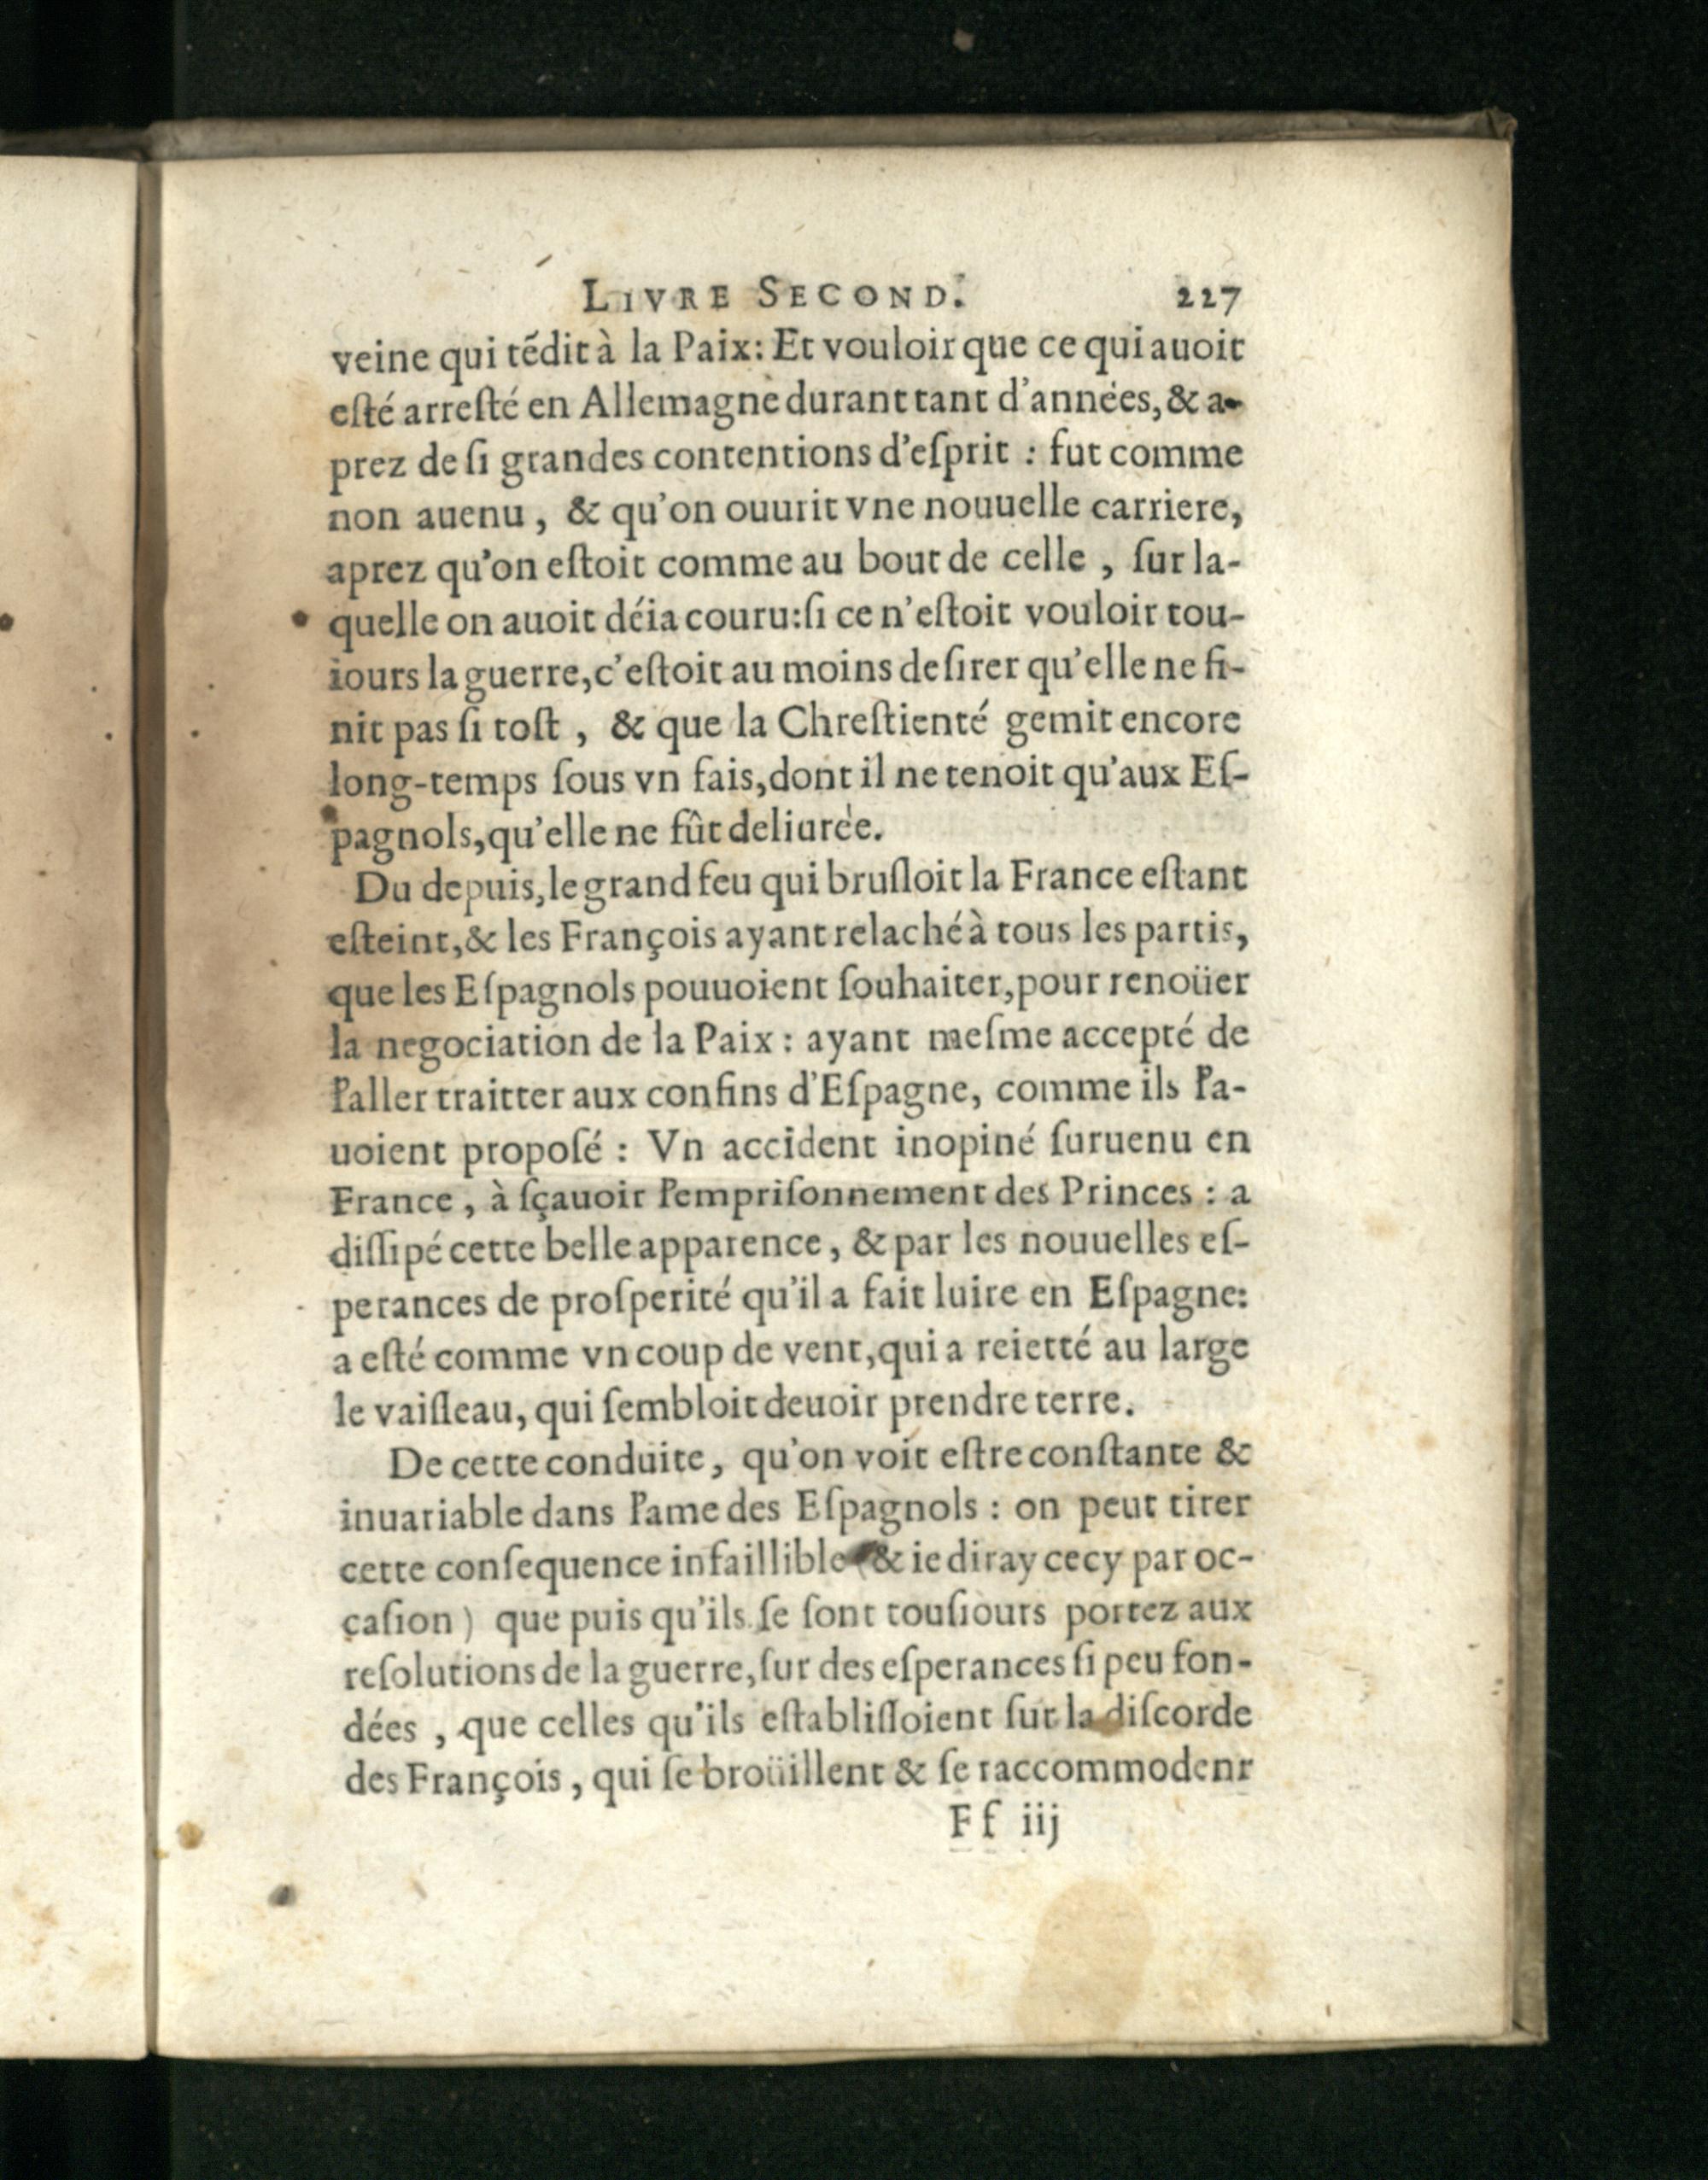 LIVRE SECOND. 227
veine qui tẽdit à la Paix: Et vouloir que ce qui auoit
eſté arreſté en Allemagne durant tant d'années, & a-
prez de ſi grandes contentions d'eſprit : fut comme
non auenu, & qu'on ouurit vne nouuelle carriere,
aprez qu'on eſtoit comme au bout de celle, ſur la-
quelle on auoit déia couru: ſi ce n'eſtoit vouloir tou-
iours la guerre, c'eſtoit au moins deſirer qu'elle ne fi-
nit pas ſi toſt, & que la Chreſtienté gemit encore
long-temps ſous vn fais, dont il ne tenoit qu'aux Eſ-
pagnols, qu'elle ne fût deliurée.
Du depuis, le grand feu qui bruſloit la France eſtant
eſteint, & les François ayant relaché à tous les partis,
que les Eſpagnols pouuoient ſouhaiter, pour renoüer
la negociation de la Paix : ayant meſme accepté de
l'aller traitter aux confins d'Eſpagne, comme ils l'a-
uoient propoſé : Vn accident inopiné ſuruenu en
France, à ſçauoir l'empriſonnement des Princes : a
diſſipé cette belle apparence, & par les nouuelles eſ-
perances de proſperité qu'il a fait luire en Eſpagne:
a eſté comme vn coup de vent, qui a reietté au large
le vaiſſeau, qui ſembloit deuoir prendre terre.
De cette conduite, qu'on voit eſtre conſtante &
inuariable dans l'ame des Eſpagnols : on peut tirer
cette conſequence infaillible (& ie diray cecy par oc-
caſion) que puis qu'ils ſe ſont touſiours portez aux
reſolutions de la guerre, ſur des eſperances ſi peu fon-
dées, que celles qu'ils eſtabliſſoient ſur la diſcorde
des François, qui ſe broüillent & ſe raccommodenr
Ff iij